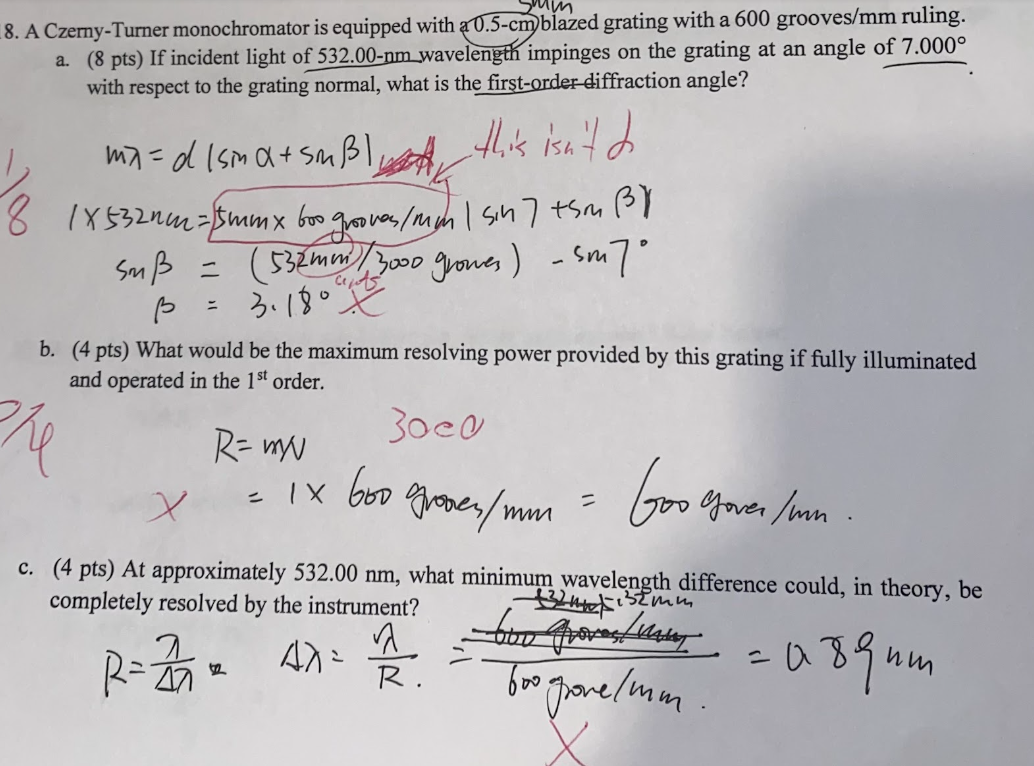 5mm
8. A Czerny-Turner monochromator is equipped with a 0.5-cm blazed grating with a 600 grooves/mm ruling.
a. (8 pts) If incident light of 532.00-nm wavelength impinges on the grating at an angle of 7.000°
with respect to the grating normal, what is the first-order diffraction angle?
mλ = d (sin α + sin β)
this isn't d
1/8
1 x 532nm = 5mm x 600 grooves/mm ( sin 7 + sin β)
sin β = (532mm / 3000 grooves) - sin 7°
units
β = 3.18° X
b. (4 pts) What would be the maximum resolving power provided by this grating if fully illuminated
and operated in the 1st order.
/4
3000
R = mN
X = 1 x 600 grooves/mm = 600 grover/mm.
c. (4 pts) At approximately 532.00 nm, what minimum wavelength difference could, in theory, be
completely resolved by the instrument?
R = λ/Δλ Δλ = λ/R. = 600 grove/mm. = 0.89 nm
X